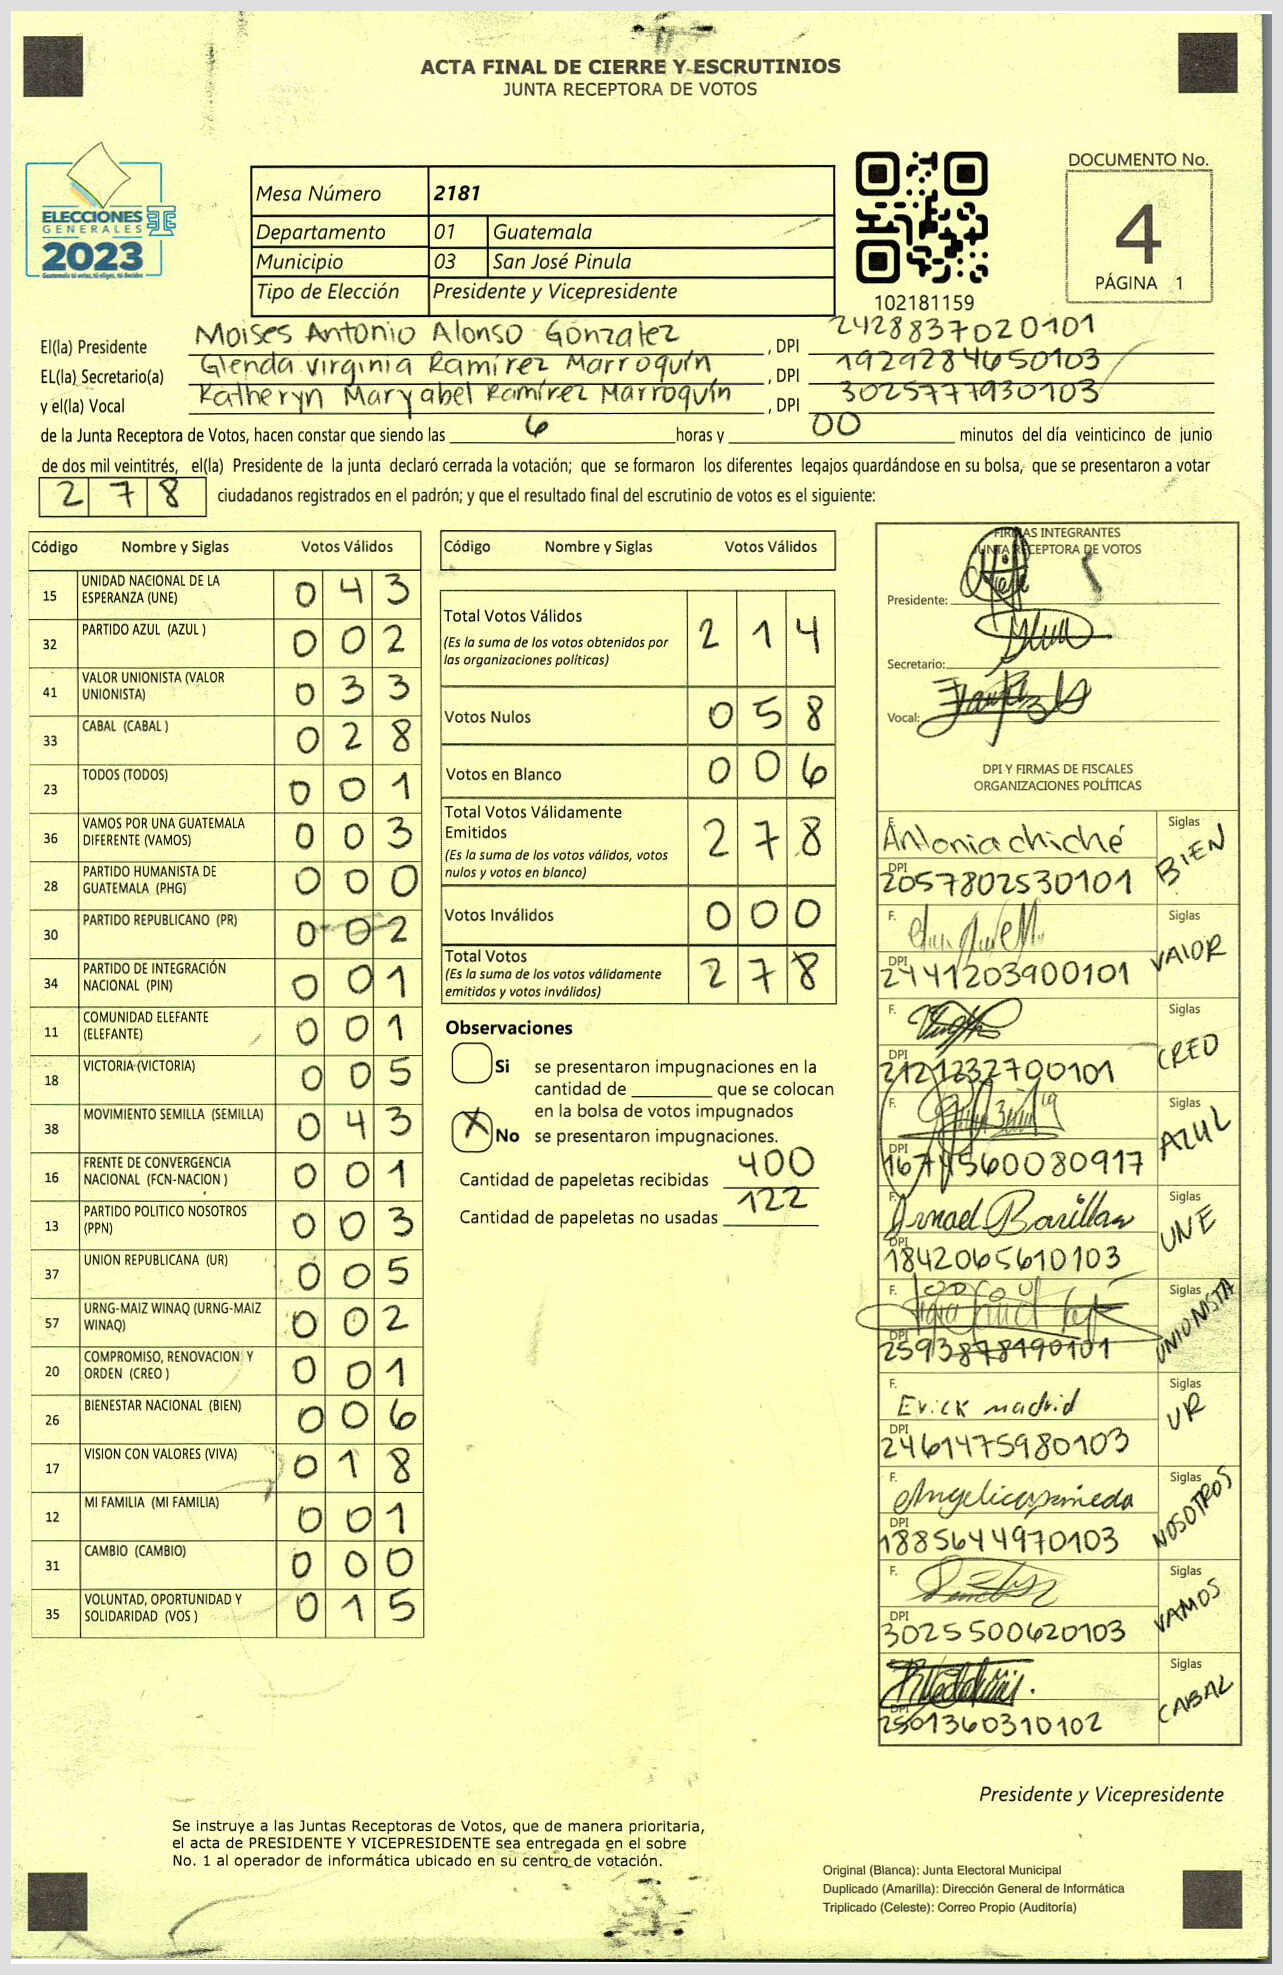 ACTA FINAL DE CIERRE Y ESCRUTINIOS
JUNTA RECEPTORA DE VOTOS
ELECCIONES
GENERALES
2023
Mesa Número 2181
Departamento 01 Guatemala
Municipio 03 San José Pinula
Tipo de Elección Presidente y Vicepresidente
102181159
DOCUMENTO No.
4
PÁGINA 1
El(la) Presidente Moises Antonio Alonso Gonzalez , DPI 2428837020101
EL(la) Secretario(a) Glenda Virginia Ramírez Marroquín , DPI 1929284650103
y el(la) Vocal Katheryn Maryabel Ramírez Marroquín , DPI 3025777930103
de la Junta Receptora de Votos, hacen constar que siendo las 6 horas y 00 minutos del día veinticinco de junio
de dos mil veintitrés, el(la) Presidente de la junta declaró cerrada la votación; que se formaron los diferentes legajos guardándose en su bolsa, que se presentaron a votar
278 ciudadanos registrados en el padrón; y que el resultado final del escrutinio de votos es el siguiente:
Código Nombre y Siglas Votos Válidos
15 UNIDAD NACIONAL DE LA ESPERANZA (UNE) 043
32 PARTIDO AZUL (AZUL ) 002
41 VALOR UNIONISTA (VALOR UNIONISTA) 033
33 CABAL (CABAL ) 028
23 TODOS (TODOS) 001
36 VAMOS POR UNA GUATEMALA DIFERENTE (VAMOS) 003
28 PARTIDO HUMANISTA DE GUATEMALA (PHG) 000
30 PARTIDO REPUBLICANO (PR) 002
34 PARTIDO DE INTEGRACIÓN NACIONAL (PIN) 001
11 COMUNIDAD ELEFANTE (ELEFANTE) 001
18 VICTORIA (VICTORIA) 005
38 MOVIMIENTO SEMILLA (SEMILLA) 043
16 FRENTE DE CONVERGENCIA NACIONAL (FCN-NACION ) 001
13 PARTIDO POLITICO NOSOTROS (PPN) 003
37 UNION REPUBLICANA (UR) 005
57 URNG-MAIZ WINAQ (URNG-MAIZ WINAQ) 002
20 COMPROMISO, RENOVACION Y ORDEN (CREO ) 001
26 BIENESTAR NACIONAL (BIEN) 006
17 VISION CON VALORES (VIVA) 018
12 MI FAMILIA (MI FAMILIA) 001
31 CAMBIO (CAMBIO) 000
35 VOLUNTAD, OPORTUNIDAD Y SOLIDARIDAD (VOS ) 015
Código Nombre y Siglas Votos Válidos
Total Votos Válidos 214
(Es la suma de los votos obtenidos por
las organizaciones políticas)
Votos Nulos 058
Votos en Blanco 006
Total Votos Válidamente
Emitidos 278
(Es la suma de los votos válidos, votos
nulos y votos en blanco)
Votos Inválidos 000
Total Votos 278
(Es la suma de los votos válidamente
emitidos y votos inválidos)
Observaciones
Si se presentaron impugnaciones en la
cantidad de ________ que se colocan
en la bolsa de votos impugnados
X No se presentaron impugnaciones.
Cantidad de papeletas recibidas 400
Cantidad de papeletas no usadas 122
FIRMAS INTEGRANTES
JUNTA RECEPTORA DE VOTOS
Presidente:
Secretario:
Vocal:
DPI Y FIRMAS DE FISCALES
ORGANIZACIONES POLÍTICAS
F. Antonia chiché Siglas BIEN
DPI 2057802530101
F. Siglas VALOR
DPI 2441203900101
F. Siglas CREO
DPI 2121232700101
F. Siglas AZUL
DPI 1674560080917
F. Siglas UNE
DPI 1842065610103
F. Siglas UNIONISTA
DPI 2593878190101
F. Erick madrid Siglas UR
DPI 2461475980103
F. Siglas NOSOTROS
DPI 1885644970103
F. Siglas VAMOS
DPI 3025500620103
F. Siglas CABAL
DPI 2501360310102
Presidente y Vicepresidente
Se instruye a las Juntas Receptoras de Votos, que de manera prioritaria,
el acta de PRESIDENTE Y VICEPRESIDENTE sea entregada en el sobre
No. 1 al operador de informática ubicado en su centro de votación.
Original (Blanca): Junta Electoral Municipal
Duplicado (Amarilla): Dirección General de Informática
Triplicado (Celeste): Correo Propio (Auditoría)